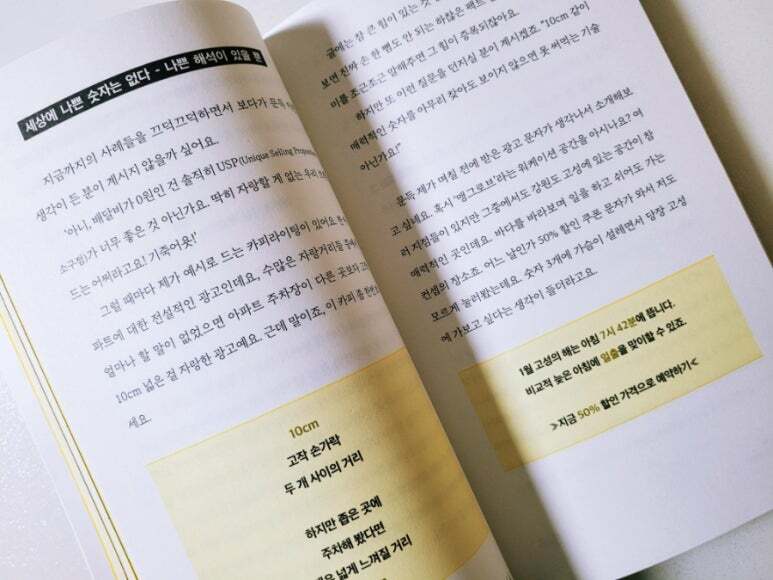 세상에 나쁜 숫자는 없다 - 나쁜 해석이 있을 뿐
지금까지의 사례들을 끄덕끄덕하면서 보다가 문득
생각이 든 분이 계시지 않을까 싶어요.
'아니, 배달비가 0원인 건 솔직히 USP(Unique Selling
소구점)가 너무 좋은 것 아닌가요. 딱히 자랑할 게 없는 우리
드는 어쩌라고요! 기죽어용!'
그럴 때마다 제가 예시로 드는 카피라이팅이 있어요.
파트에 대한 전설적인 광고인데요, 수많은 자랑거리들
얼마나 할 말이 없었으면 아파트 주차장이 다른 곳보다
10cm 넓은 걸 자랑한 광고예요. 근데 말이죠, 이 카피 좀
세요.
10cm
고작 손가락
두 개 사이의 거리
하지만 좁은 곳에
주차해 봤다면
넓게 느껴질 거리
글에는 참 큰 힘이 있는 것
보면 진짜 손 한 뼘도 안 되는 하찮은 팩트
미를 조곤조곤 말해주면 그 힘이 증폭되잖아요.
하지만 또 이런 질문을 던지실 분이 계시겠죠. "10cm 같이
매력적인 숫자를 아무리 찾아도 보이지 않으면 못 써먹는 기술
아닌가요?"
문득 제가 며칠 전에 받은 광고 문자가 생각나서 소개해보
고 싶네요. 혹시 '맹그로브'라는 워케이션 공간을 아시나요? 여
러 지점들이 있지만 그중에서도 강원도 고성에 있는 공간이 참
매력적인 곳인데요. 바다를 바라보며 일을 하고 쉬어도 가는
컨셉의 장소죠. 어느 날인가 50% 할인 쿠폰 문자가 와서 저도
모르게 눌러봤는데요. 숫자 3개에 가슴이 설레면서 당장 고성
에 가보고 싶다는 생각이 들더라고요.
1월 고성의 해는 아침 7시 42분에 뜹니다.
비교적 늦은 아침에 일출을 맞이할 수 있죠
≫지금 50% 할인 가격으로 예약하기<